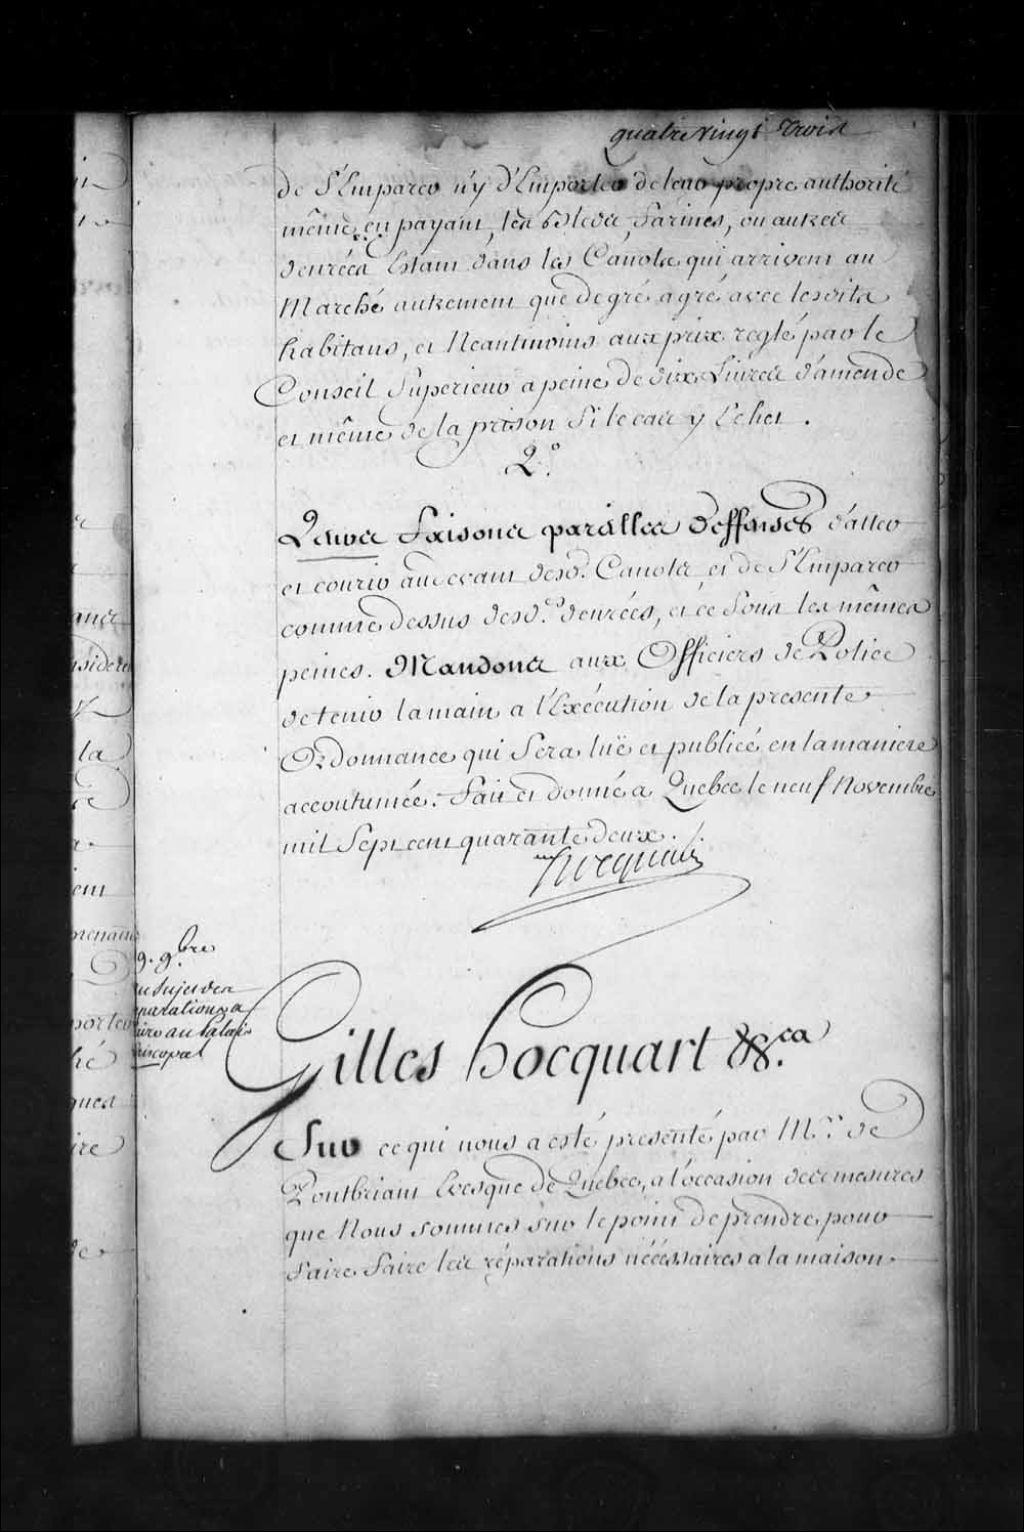 quatre vingt Trois
de S'Emparer n'y d'Emporter de leur propre authorité
même en payant, les Bleds, farines, ou autres
denrées Estant dans les Canots qui arrivent au
Marché autrement que de gré a gré avec lesdits
habitans, et Neantmoins aux prix reglé par le
Conseil Superieur a peine de dix Livres d'amende
et même de la prison Si le cas y Echet.
2.º
Leurs faisons pareilles deffenses d'aller
et courir au devant desd. Canots et de S'Emparer
comme dessus desd.es denrées, et ce Sous les mêmes
peines. Mandons aux Officiers de Police
de tenir la main a l'Exécution de la presente
Ordonnance qui Sera luë et publiée en la maniere
accoutumée. Fait et donné a Quebec le neuf Novembre
mil Sept cent quarante deux./.
Hocquart
9. 9.bre
au Sujet des
reparations a
faire au Palais
Episcopal
Gilles hocquart &c.ca
Sur ce qui nous a esté presenté par M.r de
Pontbriant Evesque de Quebec, a l'occasion des mesures
que Nous sommes sur le point de prendre pour
faire faire les réparations nécéssaires a la maison